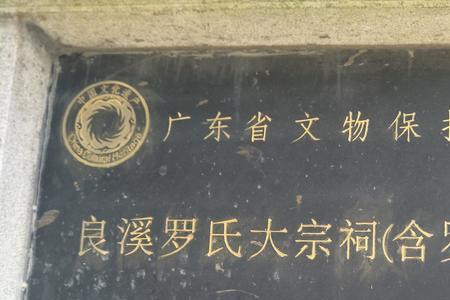 中国文化遗产
China Cultural Heritage
广东省文物保
良溪罗氏大宗祠(含